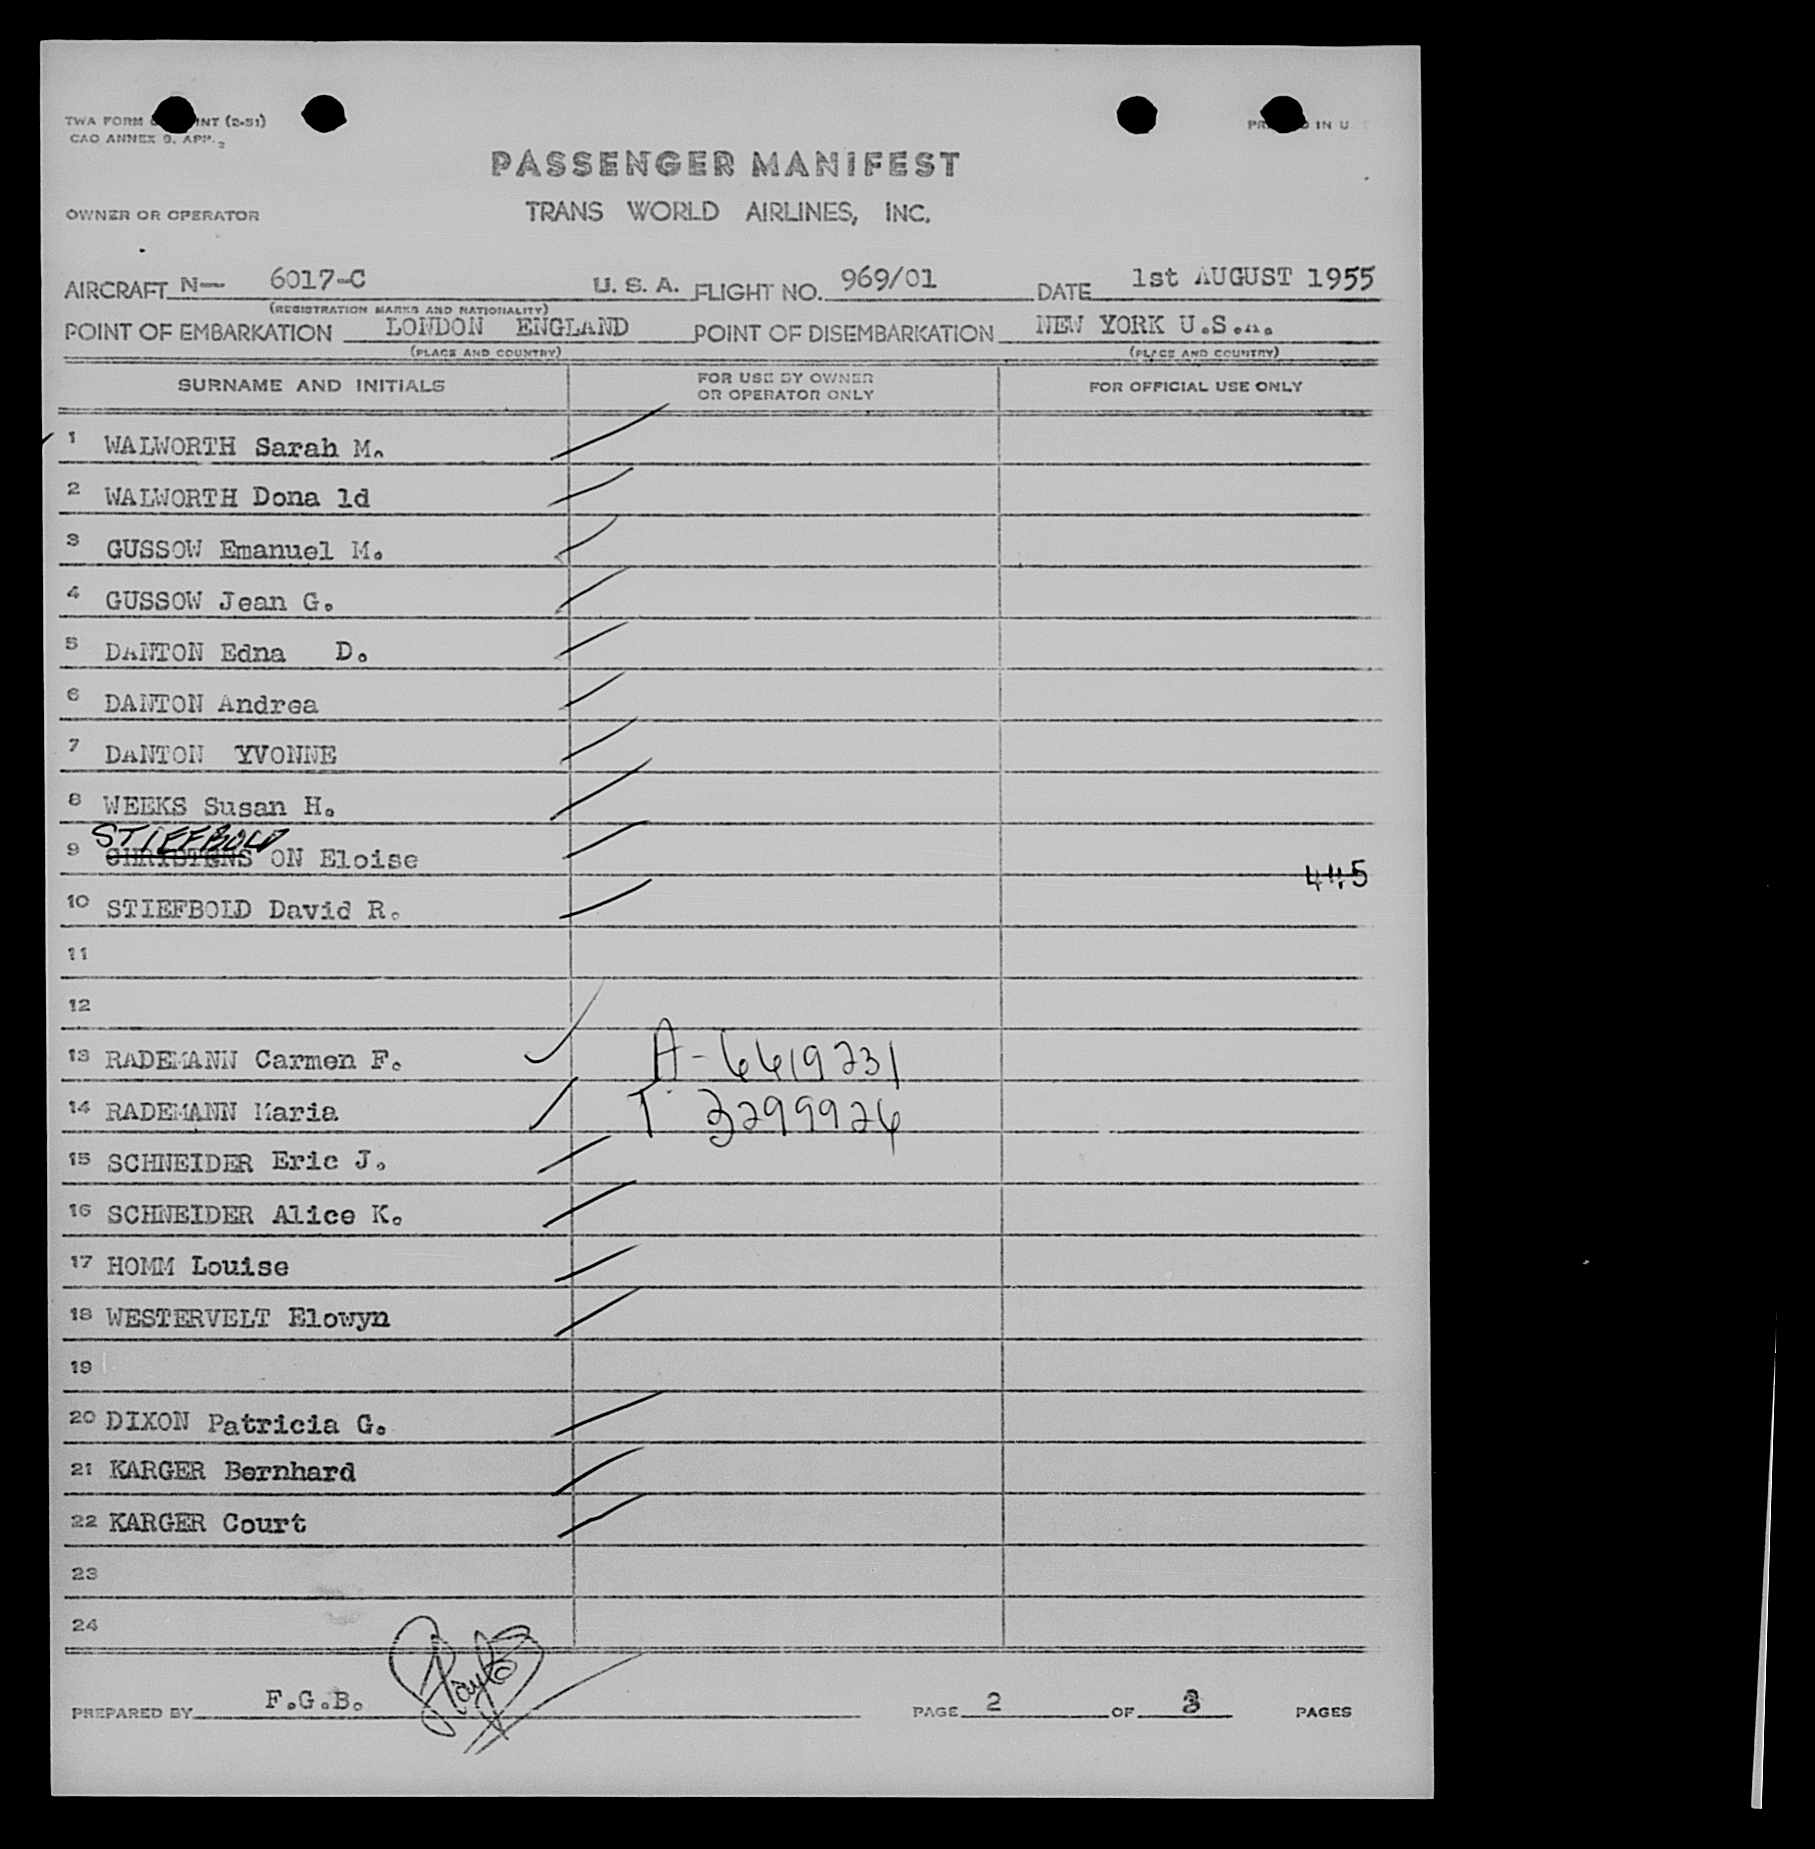 TWA FORM INT (2-51)
CAO ANNEX 9, APP. 2
PRINTED IN U
PASSENGER MANIFEST
OWNER OR OPERATOR
TRANS WORLD AIRLINES, INC.
AIRCRAFT N— 6017-C U. S. A. FLIGHT NO. 969/01 DATE 1st AUGUST 1955
(REGISTRATION MARKS AND NATIONALITY)
POINT OF EMBARKATION LONDON ENGLAND POINT OF DISEMBARKATION NEW YORK U.S.A.
(PLACE AND COUNTRY) (PLACE AND COUNTRY)
SURNAME AND INITIALS FOR USE BY OWNER OR OPERATOR ONLY FOR OFFICIAL USE ONLY
1 WALWORTH Sarah M.
2 WALWORTH Dona ld
3 GUSSOW Emanuel M.
4 GUSSOW Jean G.
5 DANTON Edna D.
6 DANTON Andrea
7 DANTON YVONNE
8 WEEKS Susan H.
STIEFBOLD
9 CHRISTENS ON Eloise
445
10 STIEFBOLD David R.
11
12
13 RADEMANN Carmen F. A-6619231
14 RADEMANN Maria T 3299926
15 SCHNEIDER Eric J.
16 SCHNEIDER Alice K.
17 HOMM Louise
18 WESTERVELT Elowyn
19
20 DIXON Patricia G.
21 KARGER Bernhard
22 KARGER Court
23
24
PREPARED BY F.G.B. PAGE 2 OF 3 PAGES